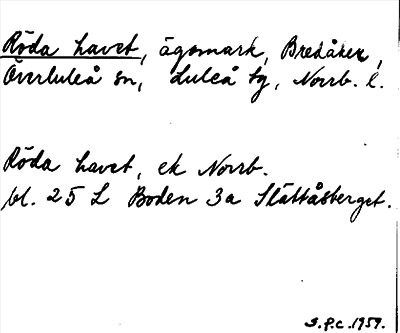 Röda havet, ägomark, Bredåker,
Överluleå sn, Luleå tg, Norrb. l.
Röda havet, ek Norrb.
bl. 25 L Boden 3a Slättåsberget.
S.P.C. 1959.